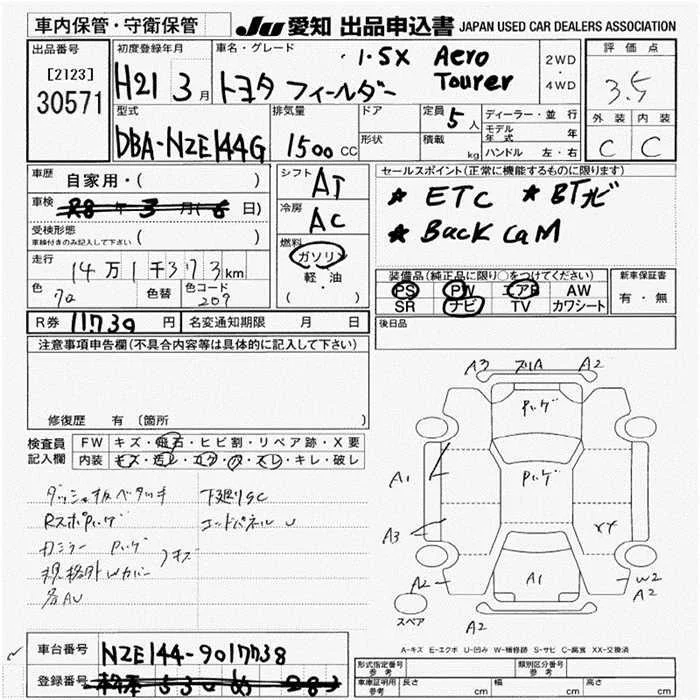 車内保管・守衛保管
JU 愛知 出品申込書 JAPAN USED CAR DEALERS ASSOCIATION
出品番号
[2123]
30571
初度登録年月
H21 3月
車名・グレード
トヨタ フィールダー
・1.5X Aero Tourer
2WD
・
4WD
評価点
3.5
外装 内装
C C
型式
DBA-NZE144G
排気量
1500 CC
ドア
形状
定員 5人
積載 kg
ディーラー・並行
モデル年式 年
ハンドル 左・右
車歴 自家用・( )
車検 R8年3月(8日)
受検形態
車検付きのみ記入して下さい ( )
走行 14万1千373km
色 7a 色替 色コード 209
シフト AT
冷房 AC
燃料
ガソリン
軽・油
( )
セールスポイント(正常に機能するものに限ります)
★ ETC ★ BTナビ
★ Back caM
装備品(純正品に限り○をつけてください)
PS PW エアB AW
SR ナビ TV カワシート
新車保証書
有・無
R券 11730円 名変通知期限 月 日
後日品
注意事項申告欄(不具合内容等は具体的に記入して下さい)
修復歴 有 (箇所 )
検査員記入欄
FW キズ・飛石・ヒビ割・リペア跡・X要
内装 キズ・汚レ・コゲ・穴・スレ・キレ・破レ
ダッシュ板ベタツキ 下廻りSC
RスポPハゲ コアパネルU
Pハゲ キズ
規格外Wカバー
各AU
A3 ズリA A2
Pハゲ
A1 Pハゲ
A3 XX
A2 A1 W2 A2
スペア
A2
A-キズ E-エクボ U-凹み W-補修跡 S-サビ C-腐食 XX-交換済
車台番号 NZE144-9017738
登録番号
形式指定番号 参考 類別区分番号 参考
車庫証明用 参考 長さ cm 幅 cm 高さ cm